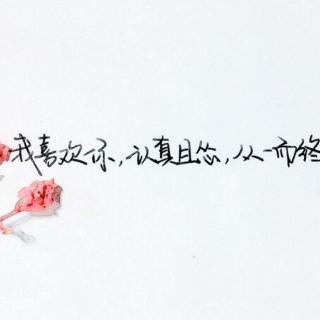 我喜欢你,认真且怂,从一而终